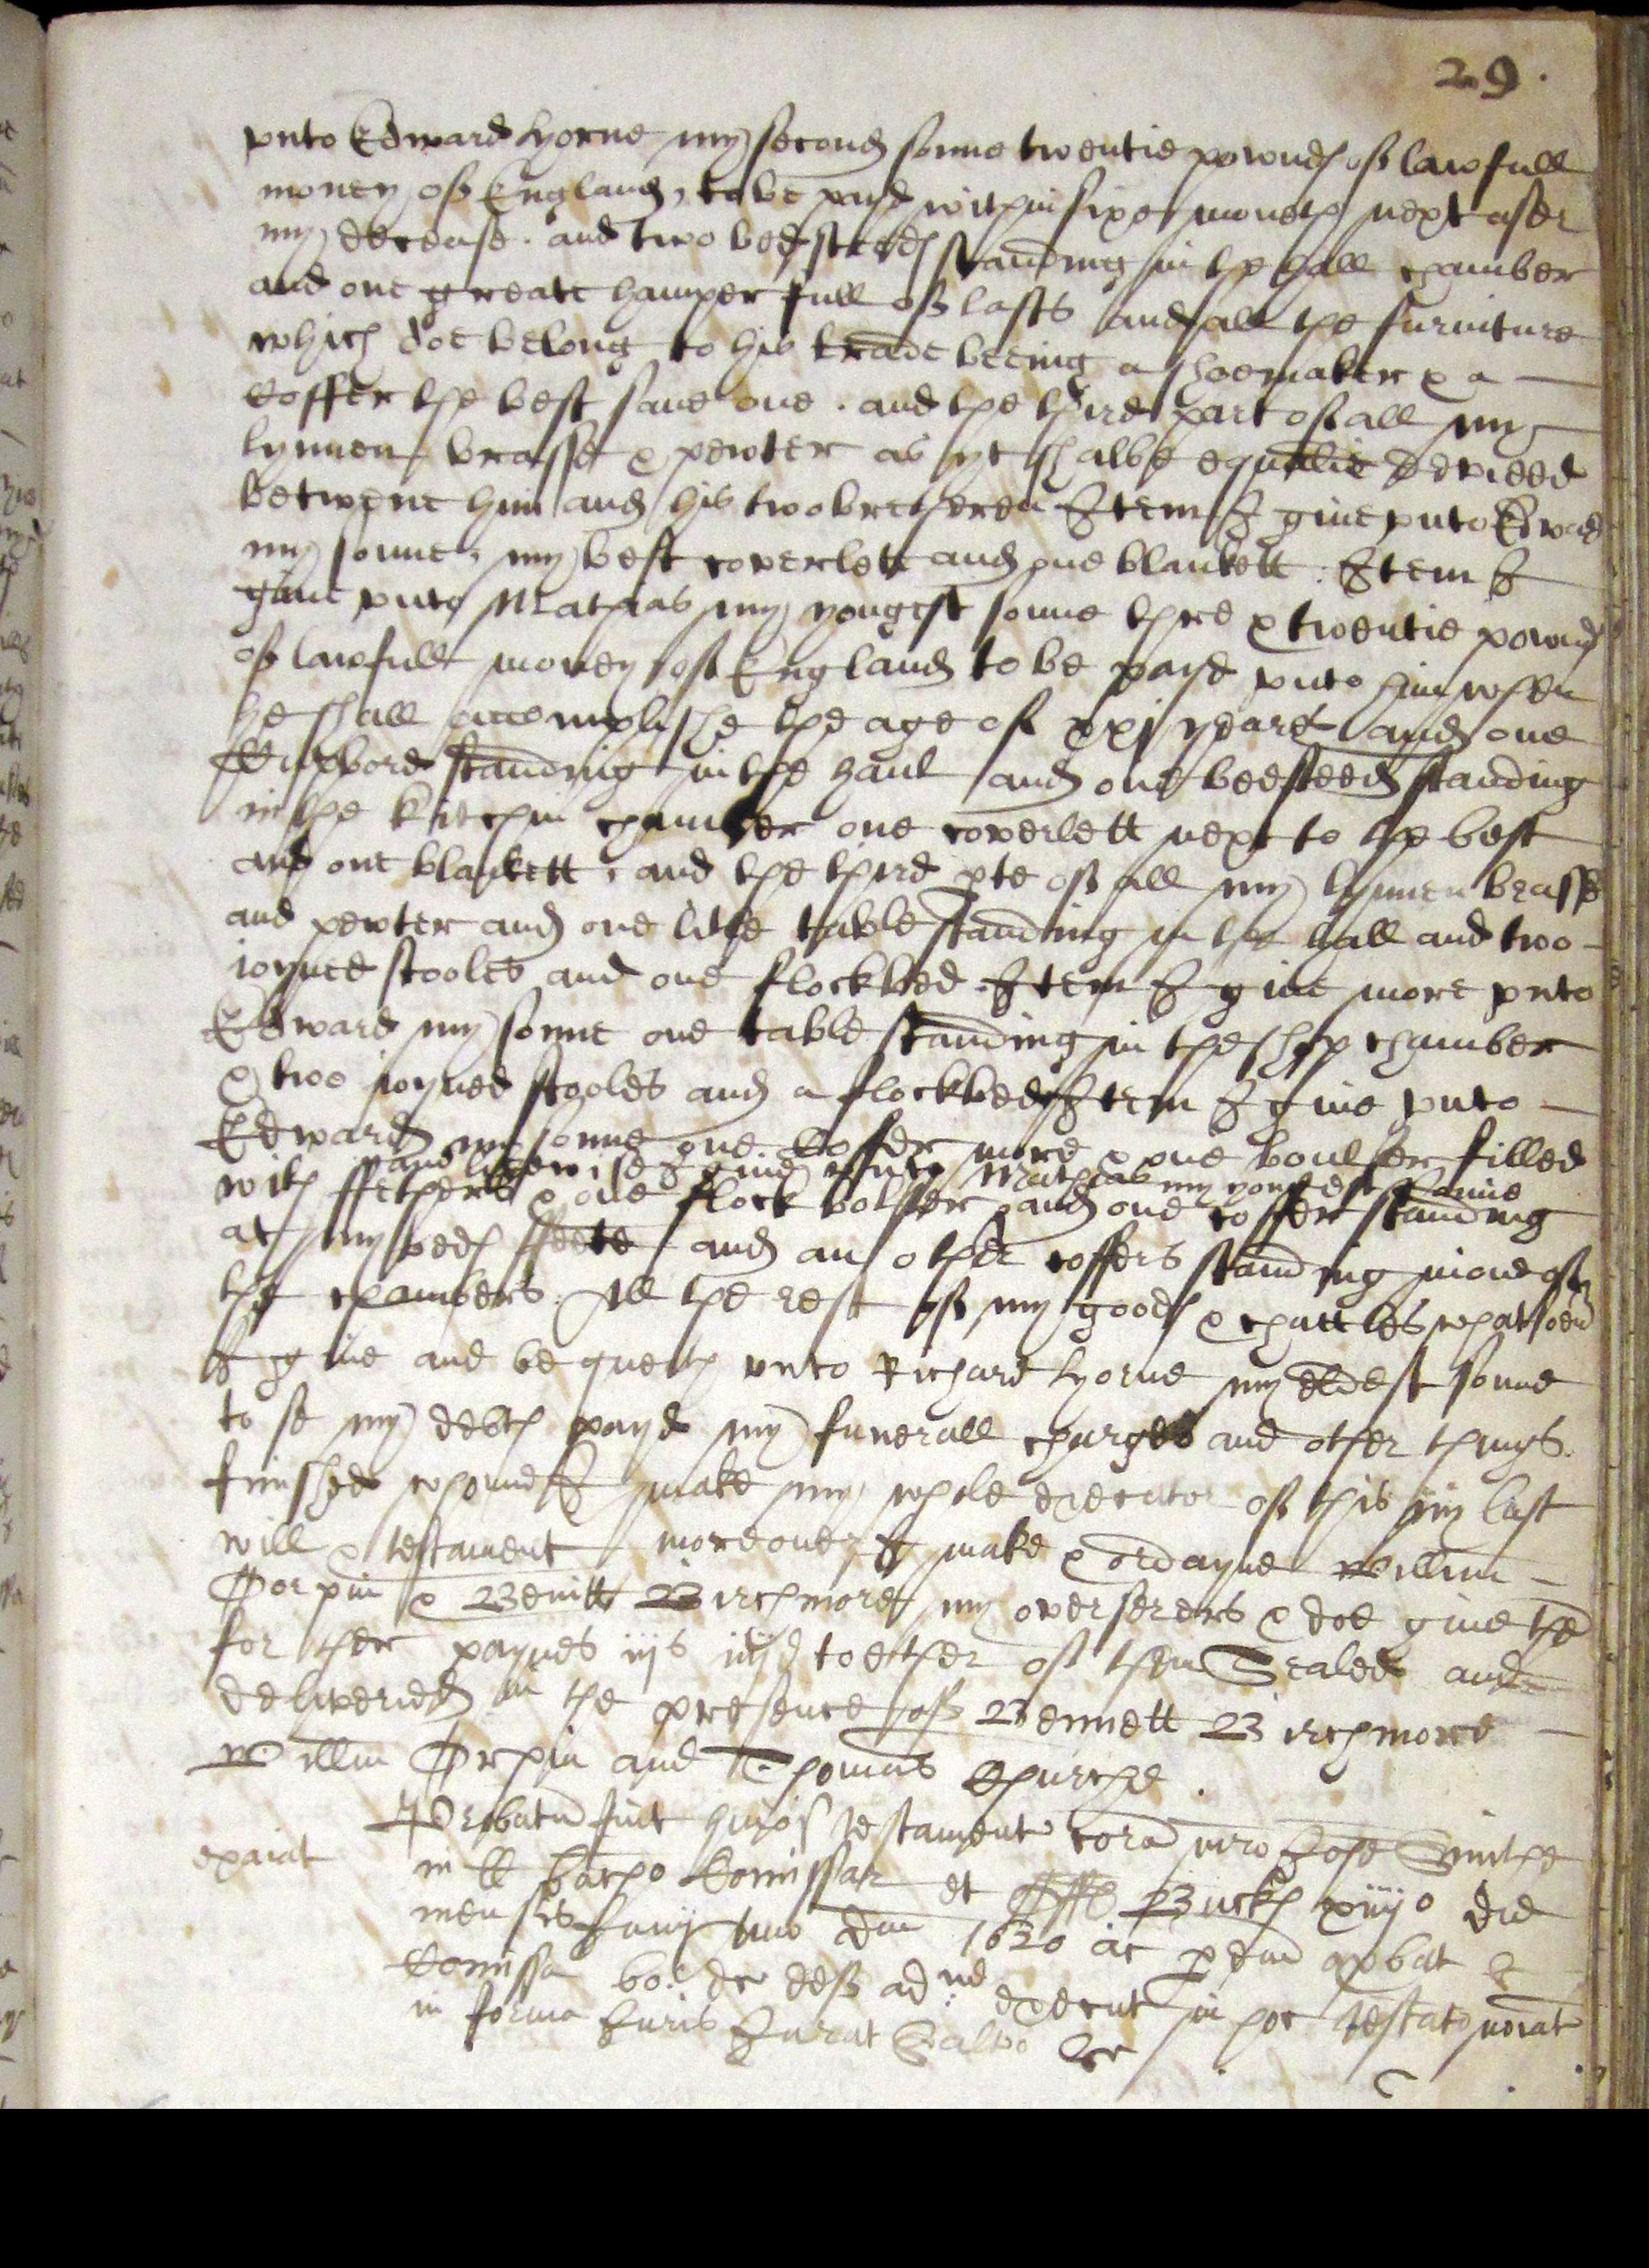 29.
vnto Edward hyorne my second sonne twentie pownds of lawfull
money of England, to be payd within sixe moneths next after
my decease. and two bedsteeds standing in the hall chamber
and one greate hamper full of lasts and all the furniture
which doe belong to his trade beeing a shoemaker & a
Coffer the best save one. and the third part of all my
lynnen brasse & pewter as yt shalbe equallie devided
betwene him and his two bretheren Item I give vnto Edward
my sonne, my best coverlett and one blankett. Item I
give vnto Mathias my yongest sonne thre & twentie pownds
of lawfull money of England to be payd vnto him when
he shall accomplishe the age of xxj yeares and one
Cupbord standing in the haul and one beesteed standing
in the kitchin chamber one coverlett next to the best
and one blankett, and the third pte of all my lynnen brasse
and pewter and one litle table standing in the hall and two
ioyned stooles and one flockbed. Item I give more vnto
Edward my sonne one table standing in the shop chamber
& two ioyned stooles and a flockbed Item I give vnto
Edward my sonne one Coffer more & one boulster filled
and likewise I give vnto Mathias my yongest sonne
with ffethers & one flock bolster and one coffer standing
at my beds ffeete and an other coffers standing in one of
the chambers. All the rest of my goods & chattles whatsoever
I give and bequeth vnto Richard hyorne my eldest sonne
to se my debts payd my funerall charges and other things
finished whome I make my whole executor of this my last
will & testament moreover I make & ordayne Willim
Orpin & Benitt Birchmore my overseers & doe give the
for ther paynes iijs iiijd to ether of them Sealed and
delivered in the presence of Bennett Birchmore
Willm Orpin and Thomas Churche.
Probatu fuit huiōs testament corā viro Iohe Smithe
expaiat
in ll bacho Comissar et Offic Bucks xiiijo die
mensis Iunij Ano dni 1620 ac p eund approbat &
Comissa
execut in hoc testato noīat
in forma Iuris Iurat Salvo &c